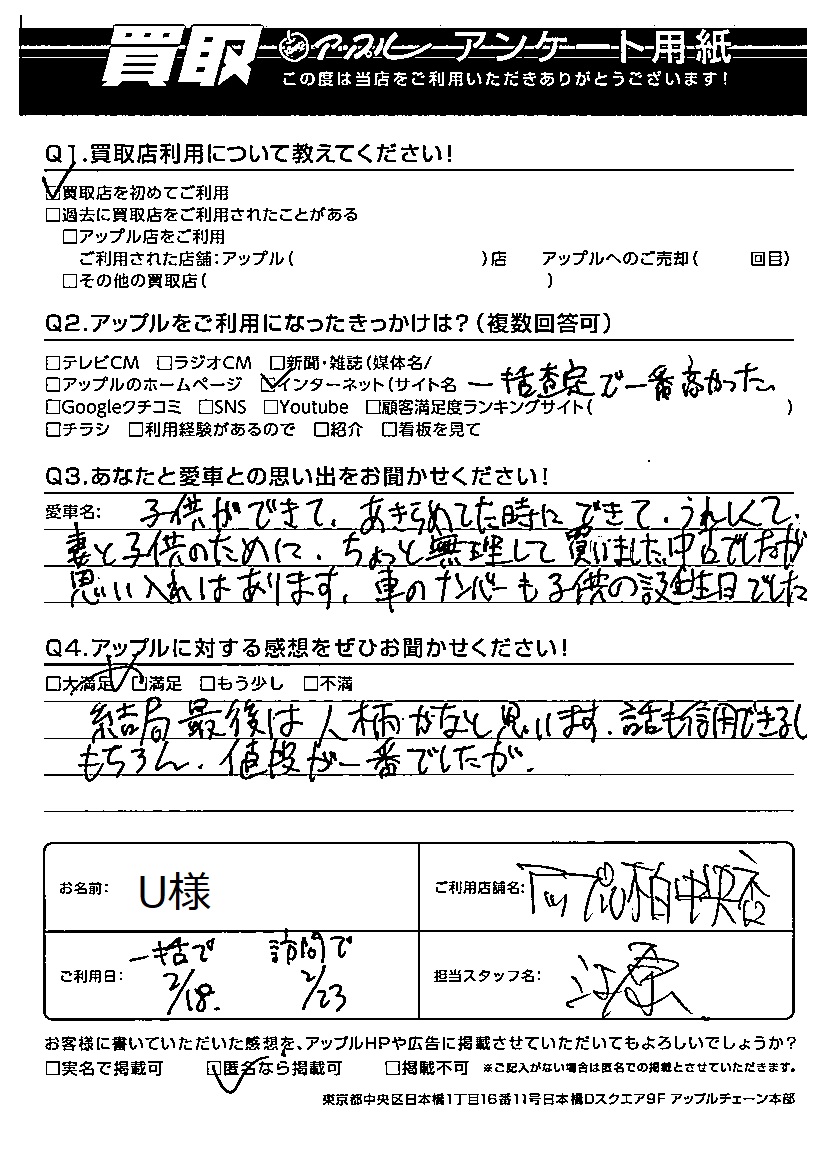 買取 アップル アンケート用紙
この度は当店をご利用いただきありがとうございます!
Q1.買取店利用について教えてください!
☑買取店を初めてご利用
□過去に買取店をご利用されたことがある
□アップル店をご利用
ご利用された店舗:アップル( )店 アップルへのご売却( 回目)
□その他の買取店( )
Q2.アップルをご利用になったきっかけは?(複数回答可)
□テレビCM □ラジオCM □新聞・雑誌(媒体名/
□アップルのホームページ ☑インターネット(サイト名 一括査定で一番高かった
□Googleクチコミ □SNS □Youtube □顧客満足度ランキングサイト( )
□チラシ □利用経験があるので □紹介 □看板を見て
Q3.あなたと愛車との思い出をお聞かせください!
愛車名: 子供ができて、あきらめてた時にできて、うれしくて、
妻と子供のために、ちょっと無理して買いました。中古でしたが
思い入れはあります。車のナンバーも子供の誕生日でした
Q4.アップルに対する感想をぜひお聞かせください!
□大満足 ☑満足 □もう少し □不満
結局最後は人柄かなと思います。話も信用できるし
もちろん、値段が一番でしたが。
お名前: U様
ご利用店舗名: アップル柏中央店
一括で 訪問で
ご利用日: 2/18. 2/23
担当スタッフ名: 江原
お客様に書いていただいた感想を、アップルHPや広告に掲載させていただいてもよろしいでしょうか?
□実名で掲載可 ☑匿名なら掲載可 □掲載不可 ※ご記入がない場合は匿名での掲載とさせていただきます。
東京都中央区日本橋1丁目16番11号日本橋Dスクエア9F アップルチェーン本部